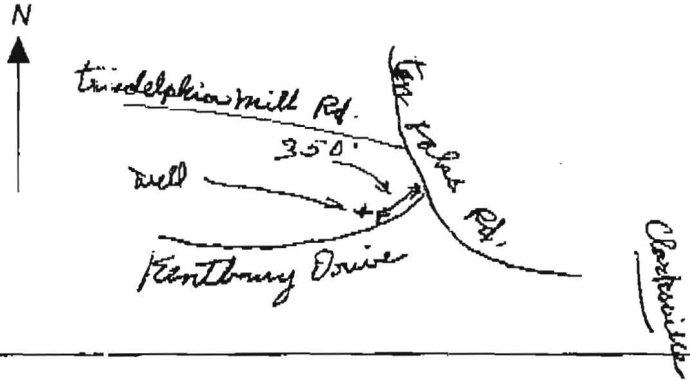 N
Triadelphia Mill Rd.
Ten Oaks Rd.
350'
Well
Kentbury Drive
Clarksville